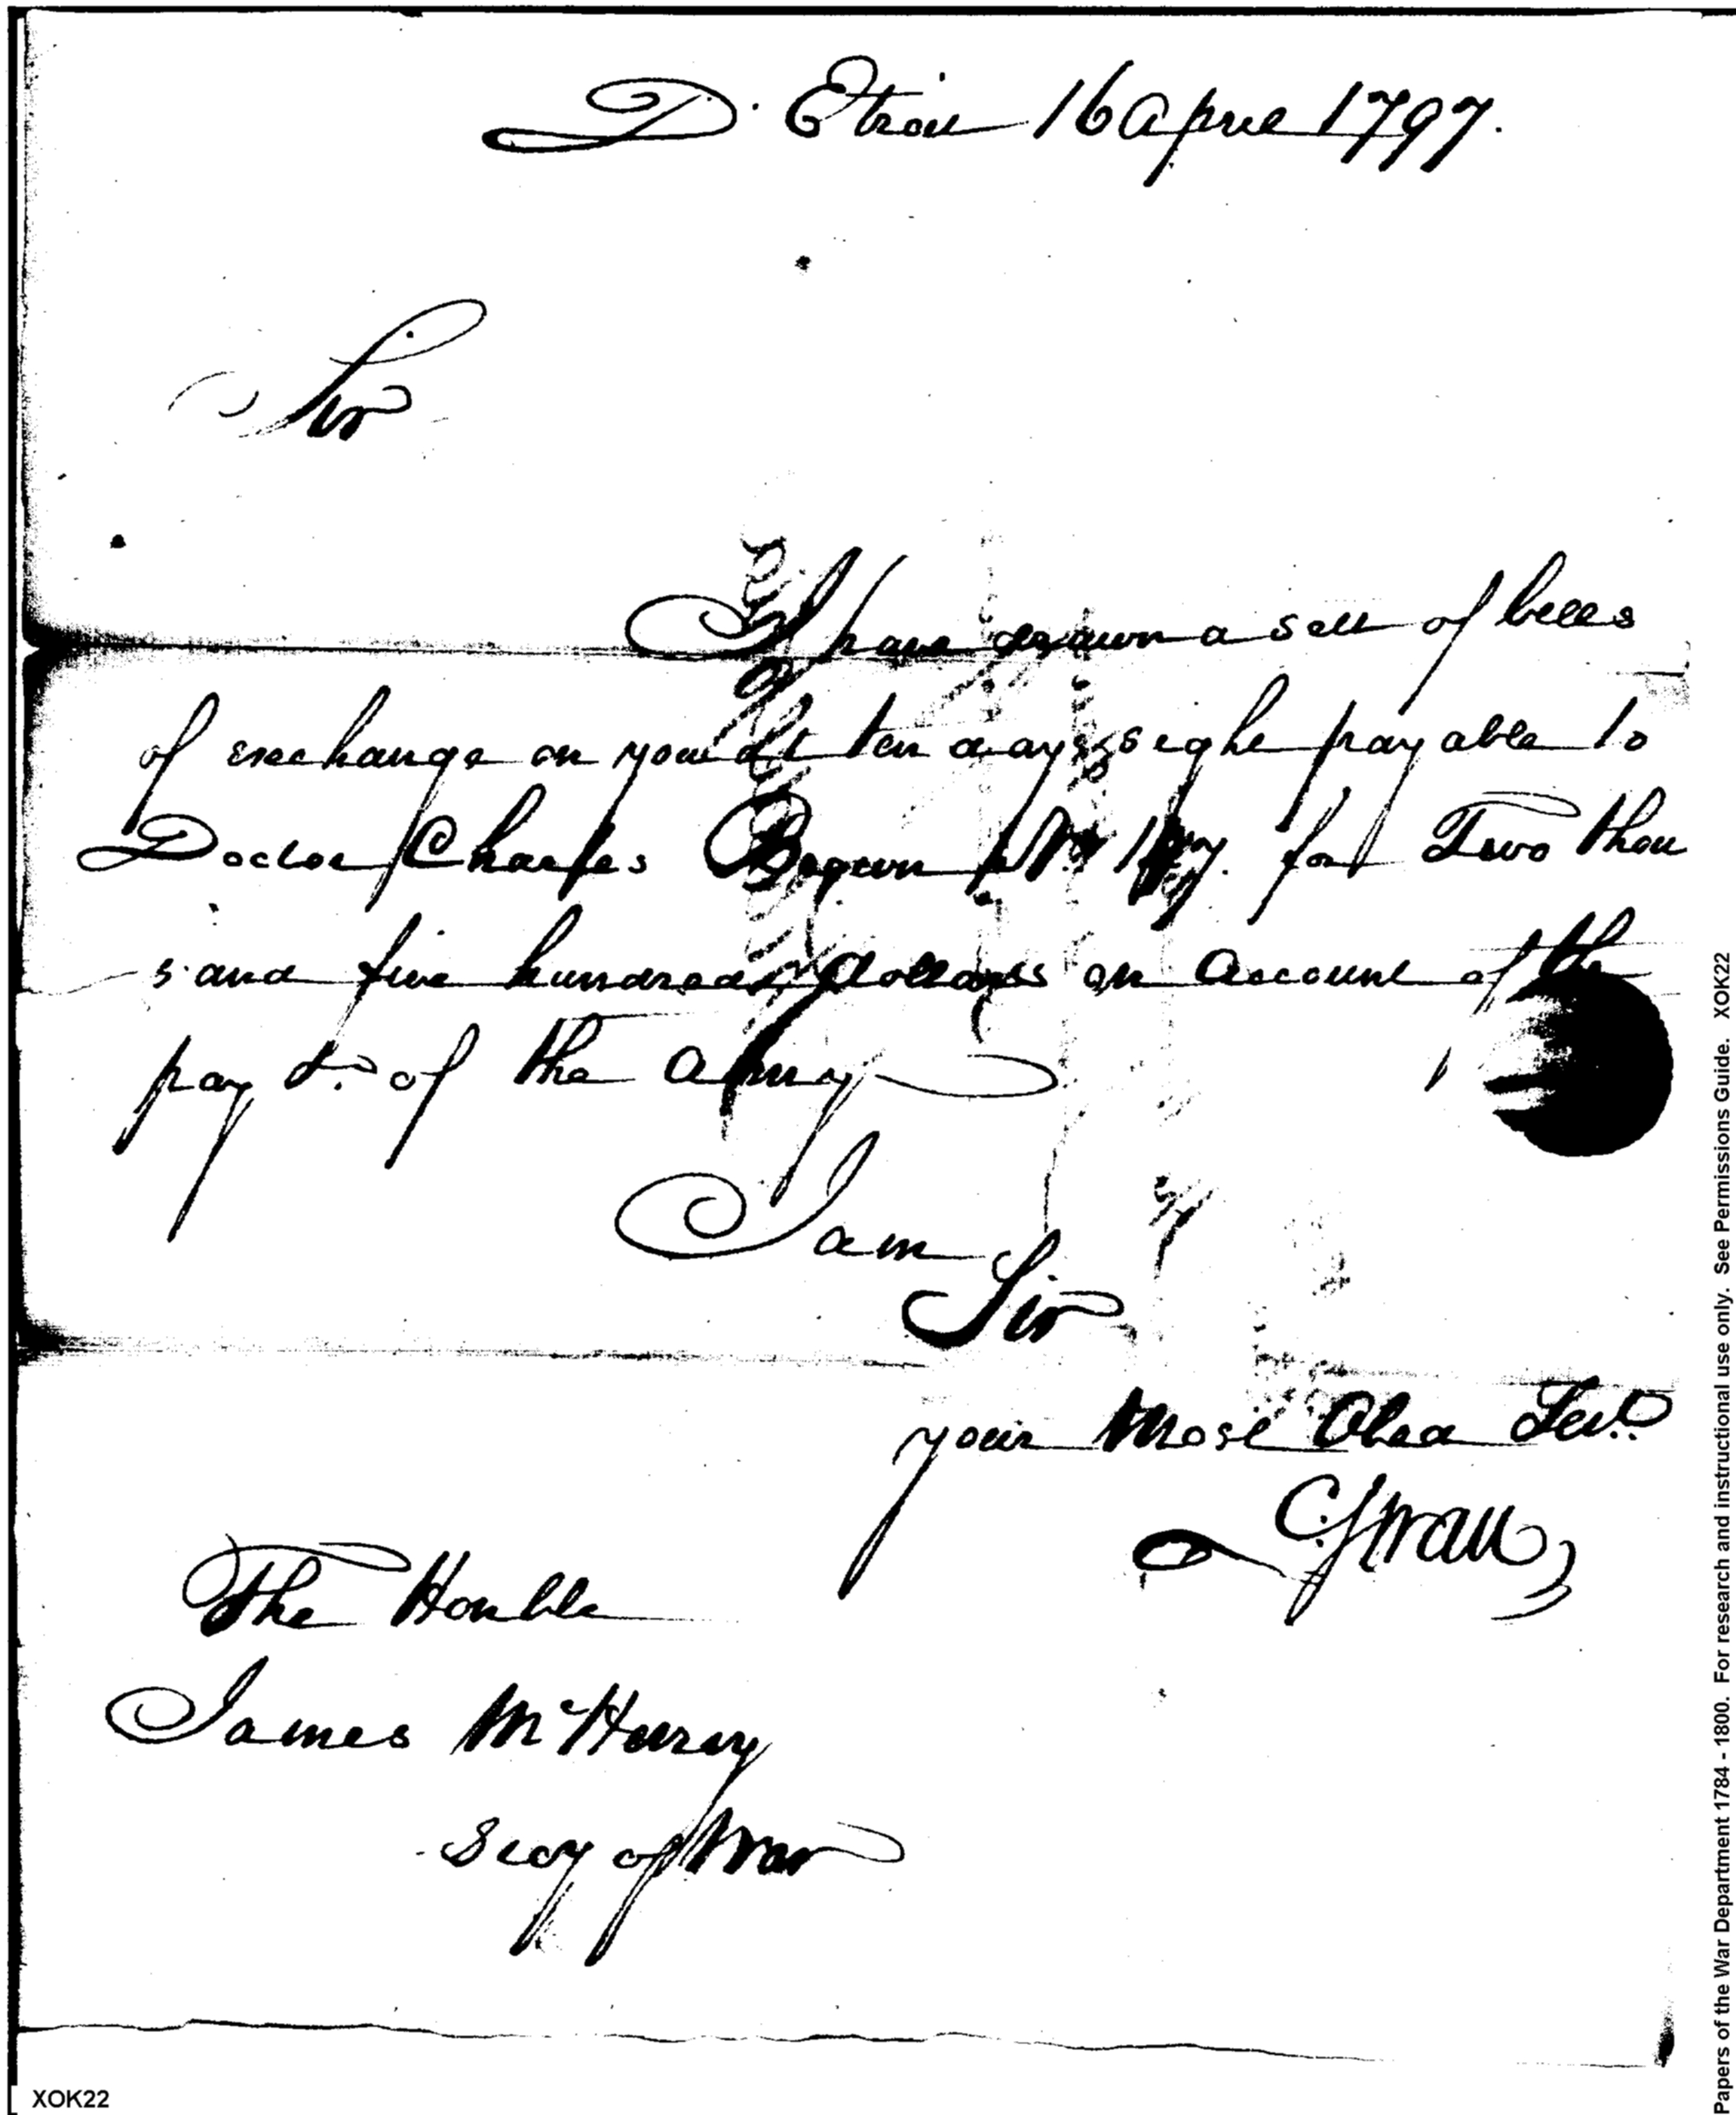 D. Etroit 16 April 1797.
Sir
I have drawn a sett of bills
of exchange on you at ten days sight payable to
Doctor Charles Brown for Two thou
sand five hundred dollars on account of the
pay &c of the army
I am
Sir
your Most Obed Servt.
C. Swan
The Honble
James McHenry
Secy of War
XOK22
Papers of the War Department 1784 - 1800. For research and instructional use only. See Permissions Guide. XOK22